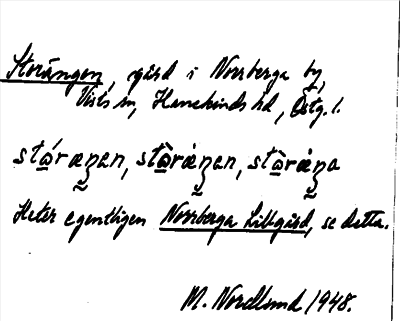 Storängen, gård i Norrberga by,
Vists sn, Hanekinds hd, Östg. l.
Heter egentligen Norrberga Lillgård, se detta.
M. Nordlund 1948.